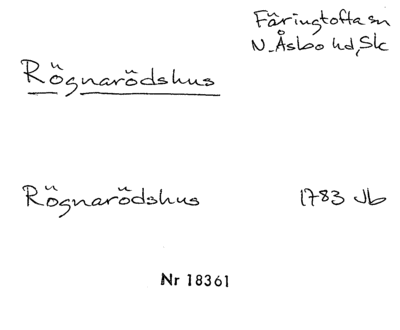 Färingtofta sn
N. Åsbo hd, Sk
Rögnarödshus
Rögnarödshus 1783 Jb
Nr 18361